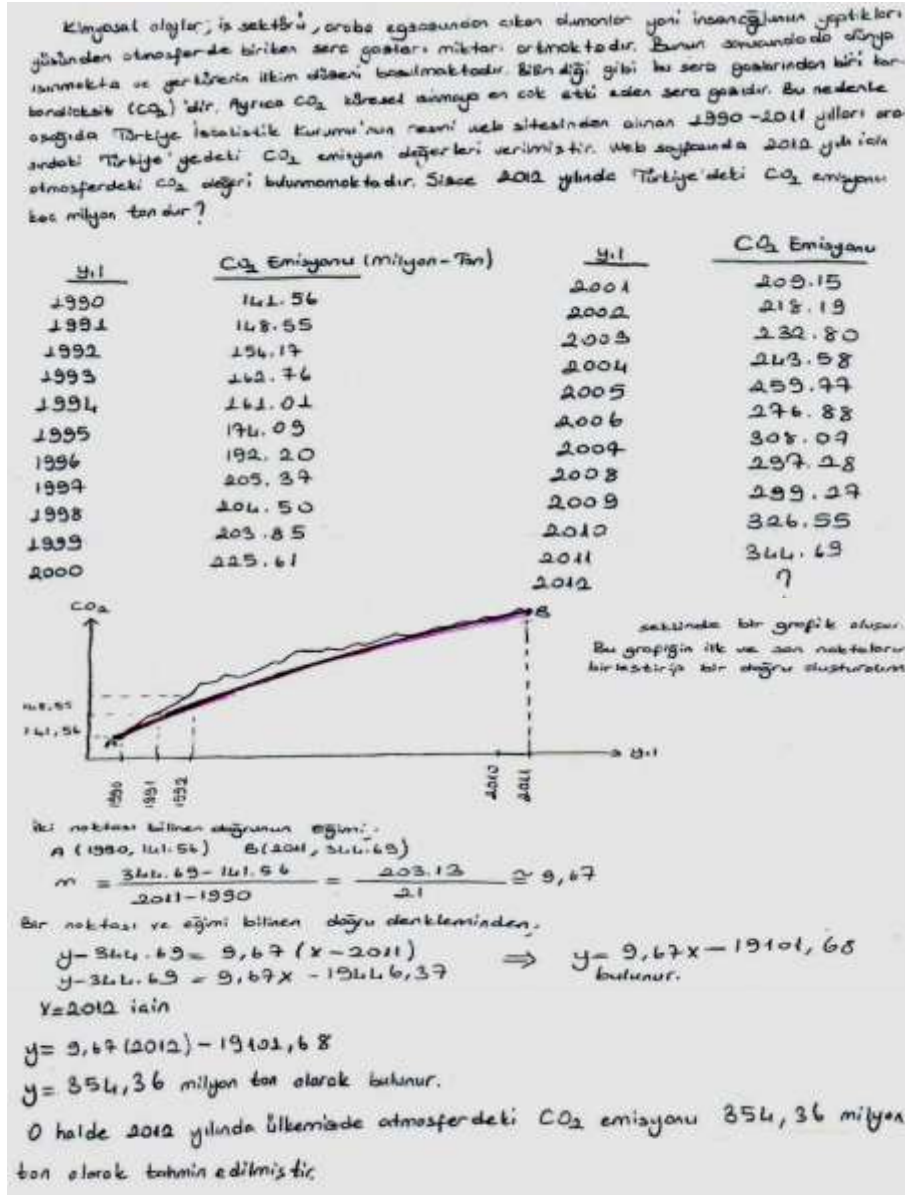 Kimyasal olaylar, iş sektörü, araba egsozundan çıkan dumanlar yani insanoğlunun yaptıkları
yüzünden atmosferde biriken sera gazları miktarı artmaktadır. Bunun sonucunda da dünya
ısınmakta ve yerkürenin iklim düzeni bozulmaktadır. Bilindiği gibi bu sera gazlarından biri kar-
bondioksit (CO₂)'dir. Ayrıca CO₂ küresel ısınmaya en çok etki eden sera gazıdır. Bu nedenle
aşağıda Türkiye İstatistik Kurumu'nun resmi web sitesinden alınan 1990-2011 yılları ara-
sındaki Türkiye'yedeki CO₂ emisyon değerleri verilmiştir. Web sayfasında 2012 yılı için
atmosferdeki CO₂ değeri bulunmamaktadır. Sizce 2012 yılında Türkiye'deki CO₂ emisyonu
kaç milyon tondur?
yıl CO₂ Emisyonu (milyon-Ton)
1990 141.56
1991 148.55
1992 154.17
1993 162.76
1994 161.01
1995 174.09
1996 192.20
1997 205.37
1998 204.50
1999 203.85
2000 225.61
yıl CO₂ Emisyonu
2001 209.15
2002 218.19
2003 232.80
2004 243.58
2005 259.77
2006 276.88
2007 308.07
2008 297.28
2009 299.27
2010 326.55
2011 344.69
2012 ?
CO₂
B
şeklinde bir grafik oluşur.
Bu grafiğin ilk ve son noktaların
birleştirip bir doğru oluşturalım
148,55
141,56
A
yıl
1990 1991 1992 2010 2011
İki noktası bilinen doğrunun eğimi:
A (1990, 141.56) B(2011, 344.69)
m = 344.69-141.56 / 2011-1990 = 203.13 / 21 ≅ 9,67
Bir noktası ve eğimi bilinen doğru denkleminden,
y-344.69 = 9,67 (x-2011) ⇒ y= 9,67x-19101,68
y-344.69 = 9,67x - 19446,37 bulunur.
X=2012 için
y= 9,67(2012)-19101,68
y= 354,36 milyon ton olarak bulunur.
O halde 2012 yılında ülkemizde atmosferdeki CO₂ emisyonu 354,36 milyon
ton olarak tahmin edilmiştir.